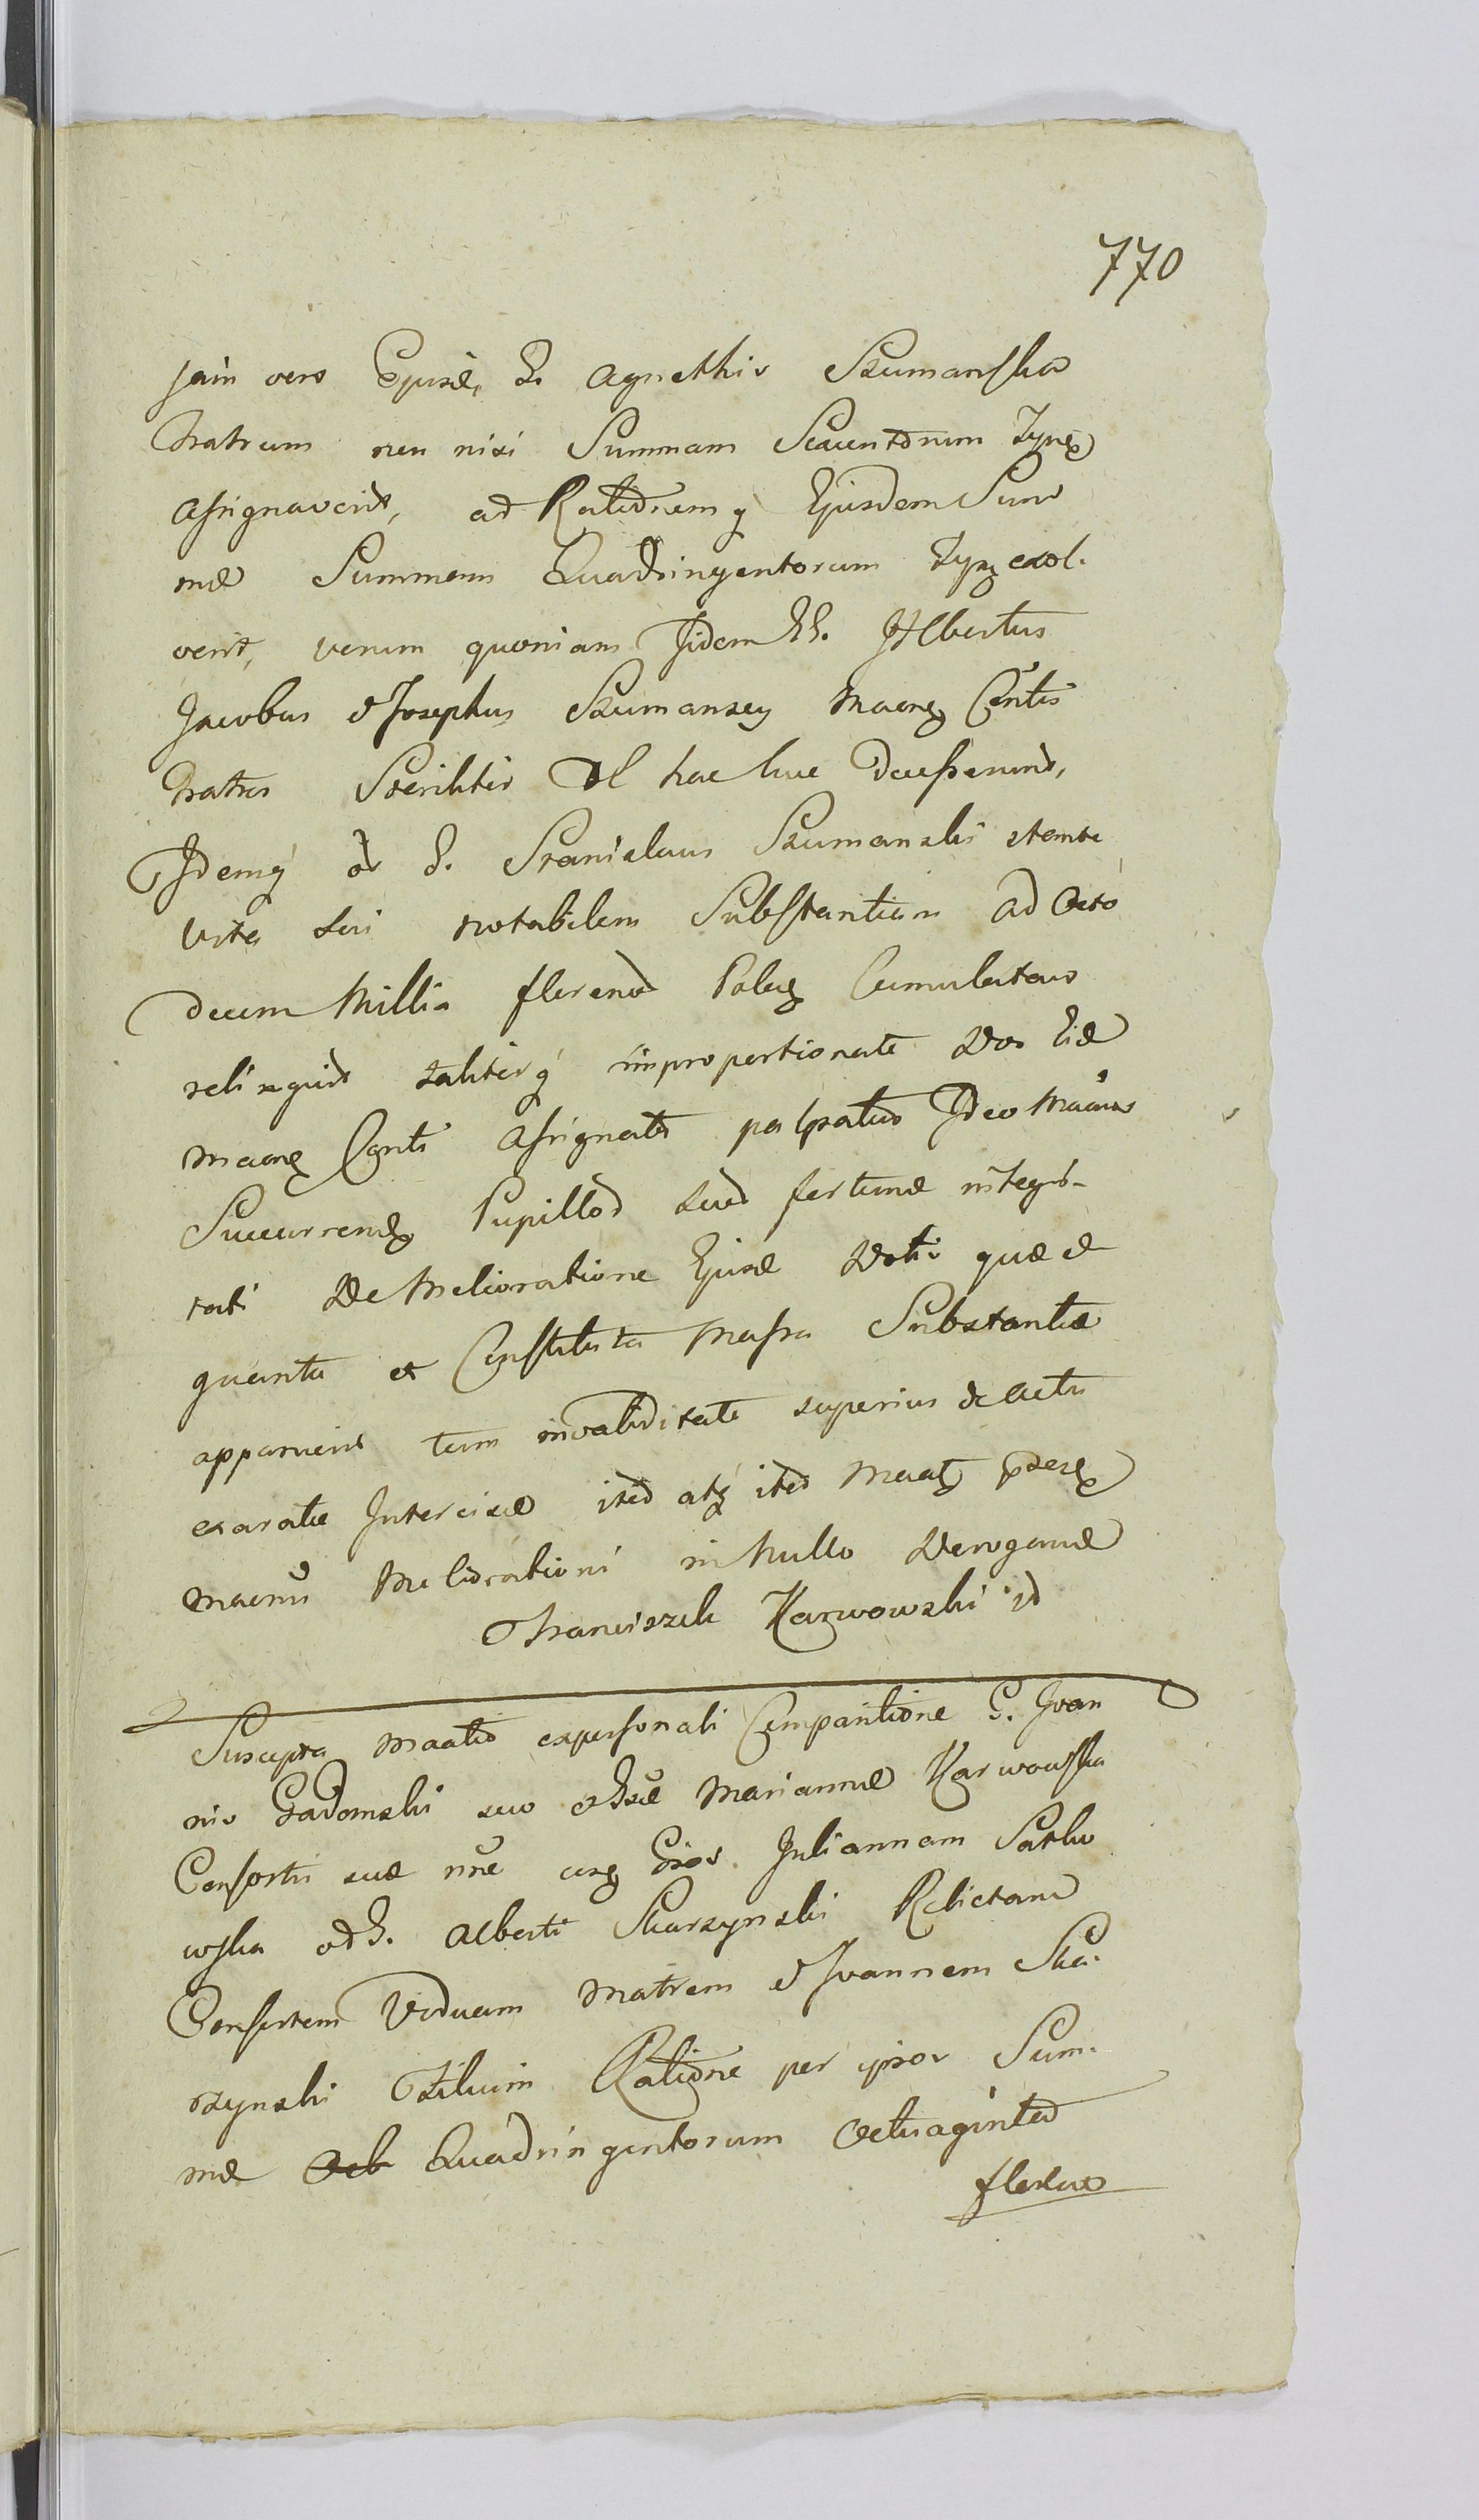 770
jam vero Ejusd, G. Agnethis Szumanska
fratrum non nisi Summam Sexcentorum Tynf
assignaverit, ad Rationemq Ejusdem Sum
mæ Summam Quadringentorum Tynf exol.
verit, verum quoniam Iidem GG. Albertus
Jacobus & Josephus Szumanscy Maenf Contis
fratres Steriliter ab hac luce decesserunt,
Idemq olim G. Stanislaus Szumanski stante
vita sui notabilem Substantiam ad Octo
decem Millia florenor Polcz Cumulatam
reliquit taliterq improportionate Dos Eid
Maenf Conti assignata Ideo Maenus
Succurrendo Pupillor suor fortunæ integri-
tati De Melioratione Ejusd Dotis quæ &
quanta ex Constituta Massa Substantiæ
apparuerit tum invaliditate superius de actu
exaratæ Intercisæ
Maenus Meliorationi in Nullo Derogand
Franciszek Karwowski
Suscepta Maatio ex personali Comparitione G. Joan
nis Gadomski suo & Gsæ Mariannæ Karwowska
Consortis suæ nne Gsos. Juliannam Sasko
wska olim G. Alberti Skarzynski Relictam
Consortem Viduam Matrem & Joannem Ska.
rzynski Filium Ratione per ipsos Sum.
mæ Oct Quadringentorum Octuaginta
floreno